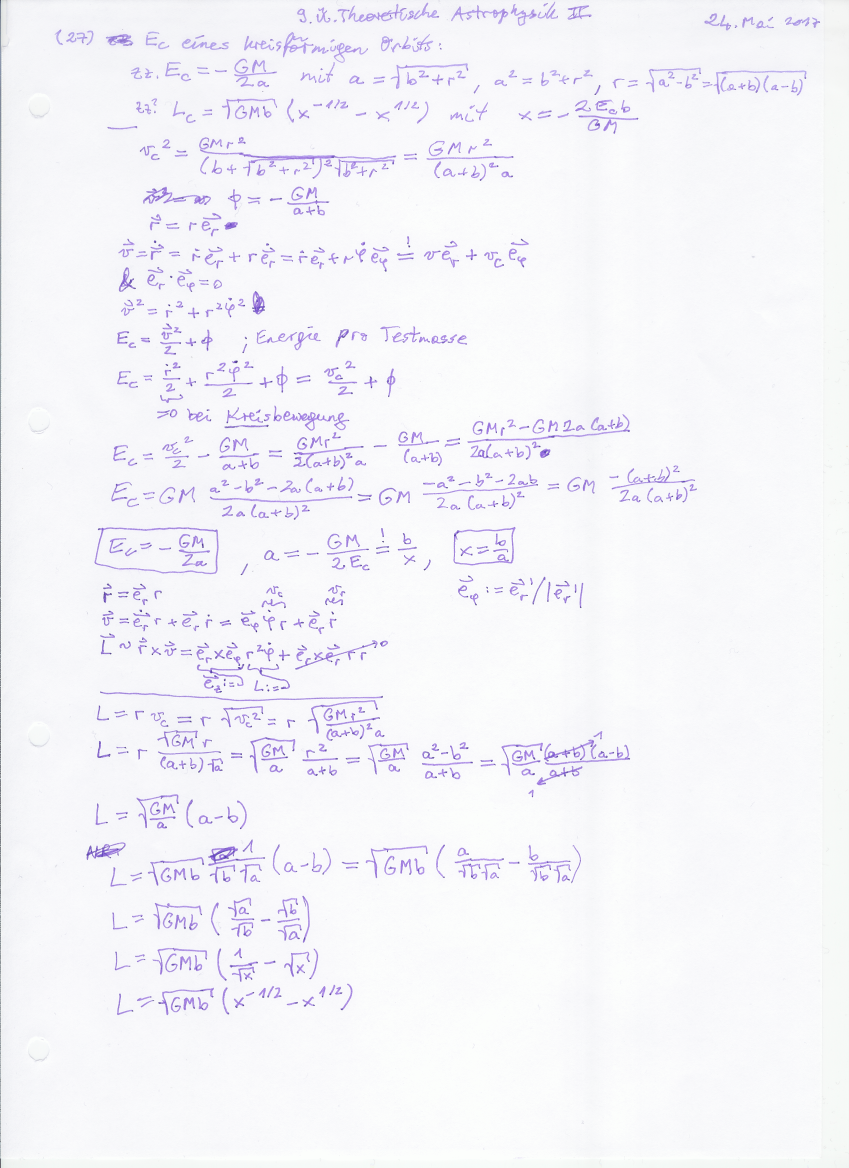 9. Ü. Theoretische Astrophysik II
24. Mai 2017
(27) E_c eines kreisförmigen Orbits:
zz. E_c = -GM/2a mit a = √(b²+r²), a² = b²+r², r = √(a²-b²) = √((a+b)(a-b))
zz: L_c = √(GMb) (x^(-1/2) - x^(1/2)) mit x = -2E_c b/GM
v_c² = GMr²/((b+√(b²+r²))² √(b²+r²)) = GMr²/((a+b)² a)
ϕ = -GM/(a+b)
r⃗ = r e⃗_r
v⃗ = r⃗̇ = ṙ e⃗_r + r e⃗̇_r = ṙ e⃗_r + r φ̇ e⃗_φ =! v e⃗_r + v_c e⃗_φ
& e⃗_r · e⃗_φ = 0
v⃗² = ṙ² + r² φ̇²
E_c = v⃗²/2 + ϕ ; Energie pro Testmasse
E_c = ṙ²/2 + r² φ̇²/2 + ϕ = v_c²/2 + ϕ
=0 bei Kreisbewegung
E_c = v_c²/2 - GM/(a+b) = GMr²/(2(a+b)² a) - GM/(a+b) = (GMr² - GM2a(a+b))/(2a(a+b)²)
E_c = GM (a²-b²-2a(a+b))/(2a(a+b)²) = GM (-a²-b²-2ab)/(2a(a+b)²) = GM -(a+b)²/(2a(a+b)²)
E_c = -GM/2a , a = -GM/2E_c =! b/x , x = b/a
r⃗ = e⃗_r r
e⃗_φ := e⃗_r'/|e⃗_r'|
v_c v_r
v⃗ = e⃗̇_r r + e⃗_r ṙ = e⃗_φ φ̇ r + e⃗_r ṙ
L⃗ ~ r⃗ × v⃗ = e⃗_r × e⃗_φ r² φ̇ + e⃗_r × e⃗_r r ṙ 0
e⃗_z := L :=
L = r v_c = r √(v_c²) = r √(GMr²/((a+b)² a))
L = r √(GM) r/((a+b)√a) = √(GM/a) r²/(a+b) = √(GM/a) (a²-b²)/(a+b) = √(GM/a) (a+b)(a-b)/(a+b) 1 1
L = √(GM/a) (a-b)
L = √(GMb) 1/(√b √a) (a-b) = √(GMb) (a/(√b √a) - b/(√b √a))
L = √(GMb) (√a/√b - √b/√a)
L = √(GMb) (1/√x - √x)
L = √(GMb) (x^(-1/2) - x^(1/2))